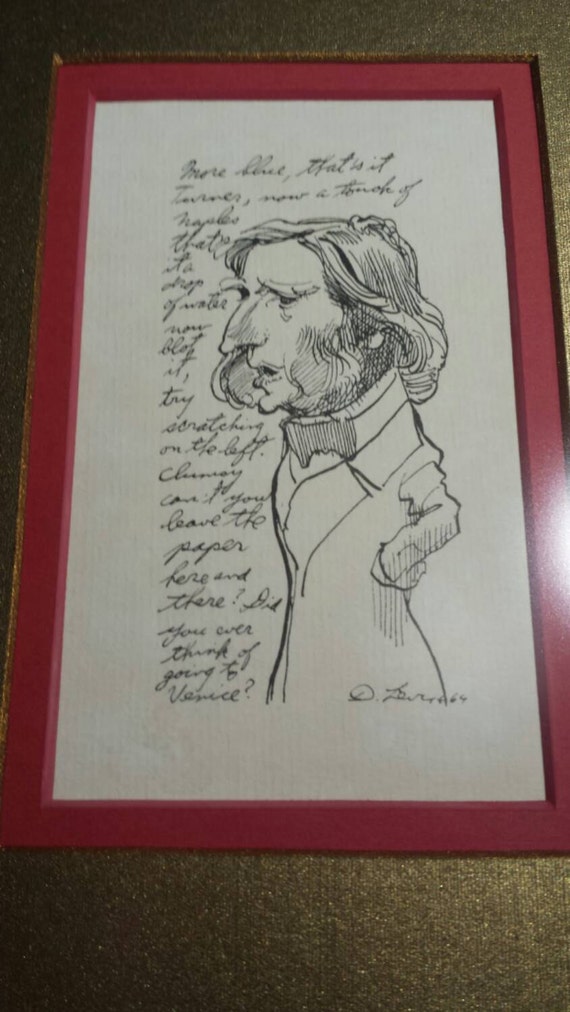 More blue, that is it
Turner, now a touch of
Naples
that's
it a
drop
of water
now
blot
it,
try
scratching
on the left.
Clumsy
can't you
leave the
paper
here and
there? Did
you ever
think of
going to
Venice?
D. Levine 64